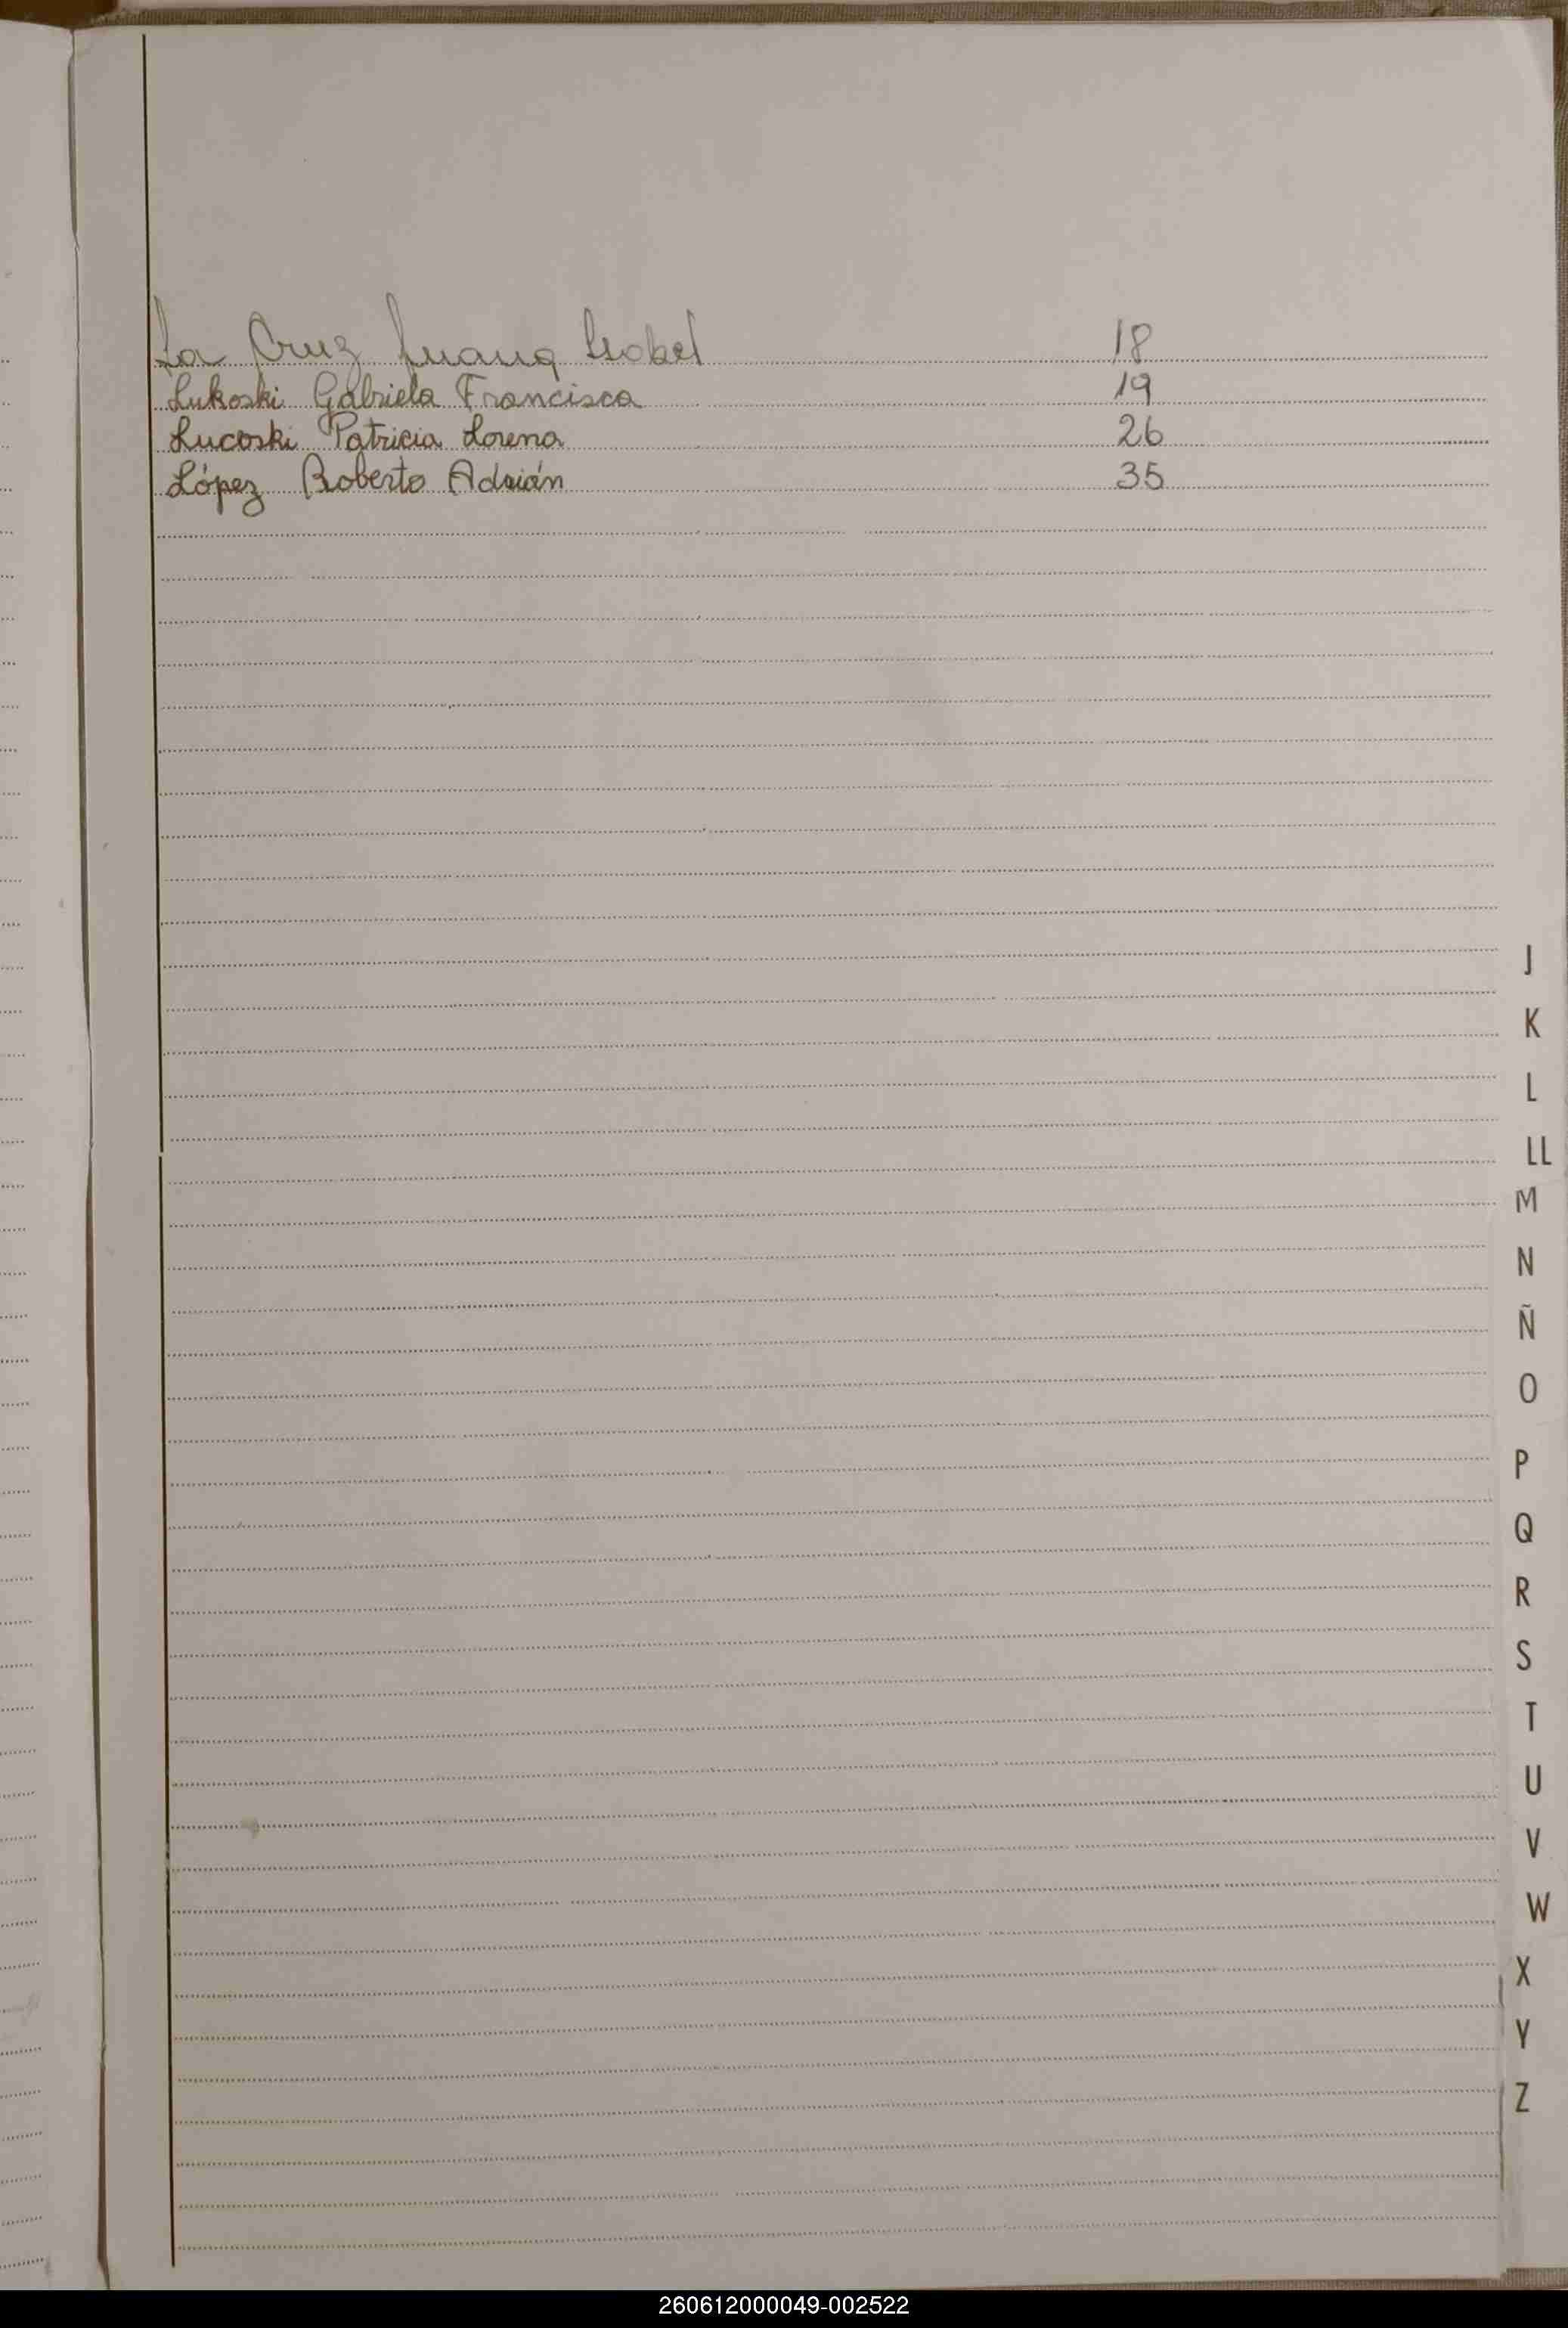 La Cruz Juana Isabel 18
Lukoski Gabriela Francisca 19
Lucoski Patricia Lorena 26
López Roberto Adrián 35
J
K
L
LL
M
N
Ñ
O
P
Q
R
S
T
U
V
W
X
Y
Z
260612000049-002522